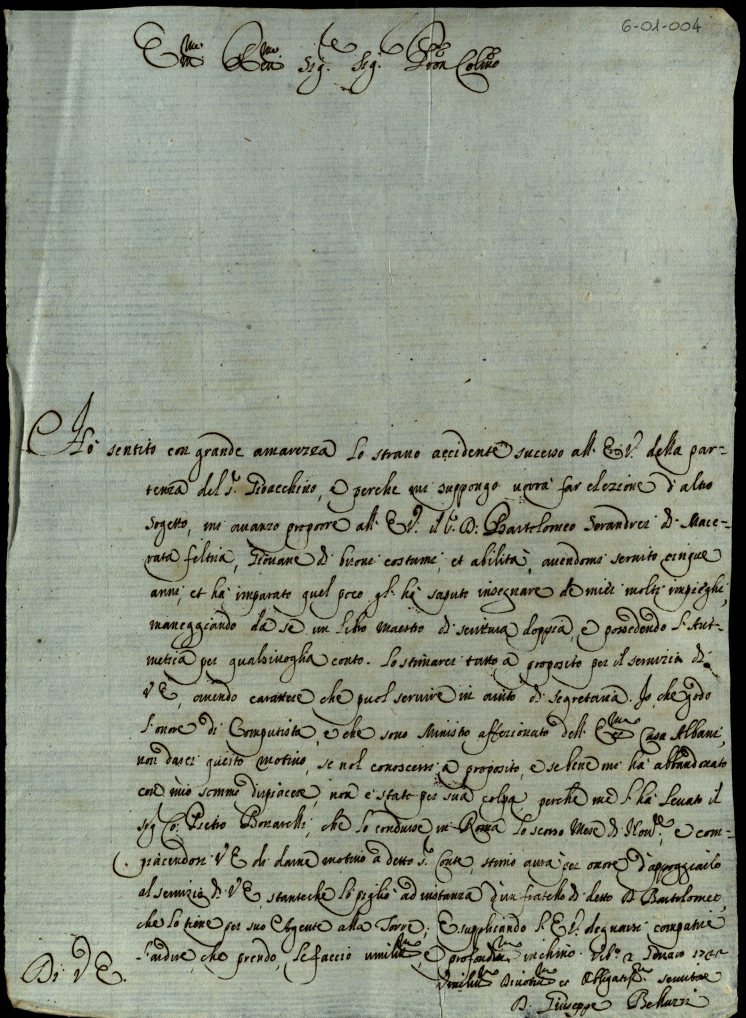 6-01-004
Em̃o Rev̄mo Sig.re Sig.re Pron Col̄mo
Hò sentito con grande amarezza lo strano accidente sucesso all' E. V. della par=
tenza del S.r Gioacchino, e perche mi suppongo vorrà far elezione d'altro
Sogetto, mi avanzo proporre all' E V. il S.r D. Bartolomeo Sorandrei di Mace=
rata feltria, Giovane di buoni costumi, et abilità, avendomi servito cinque
anni, et hà imparato quel poco gl' hà saputo insegnare de miei molti impieghi,
maneggiando da se un libro maestro di scrittura doppia, e possedendo l'Arit=
metica per qualsivoglia conto. Lo stimarei tutto a proposito per il servizio di
V E, avendo carattere che puol servire in aiuto di segretaria. Io che godo
l'onore di Computista, e che sono Ministro affezionato dell' Ecc.ma Casa Albani,
non darei questo motivo, se nol conoscessi a proposito, e se bene mi hà abbandonato
con mio sommo dispiacere, non è stato per sua colpa, perche me l'hà levato il
Sig.r Co: Pietro Bonarelli, che lo condusse in Roma lo scorso Mese di Nov.e, e com=
piacendosi V E de darne motivo a detto S.r Conte, stimo avrà per onore d'appoggiarlo
al servizio di V E, stanteche lo pigliò ad instanza d'un fratello di detto D. Bartolomeo,
che lo tiene per suo Agente alla Torre; E supplicando l' E V. degnarsi compatire
l'ardire, che prendo, le faccio umiliss.mo e profondiss.mo inchino. Urb.o 2 Gennaro
Di V E.
Umiliss.mo Divotiss.mo et Obligatiss.mo servitore
D. Giuseppe Belluzzi